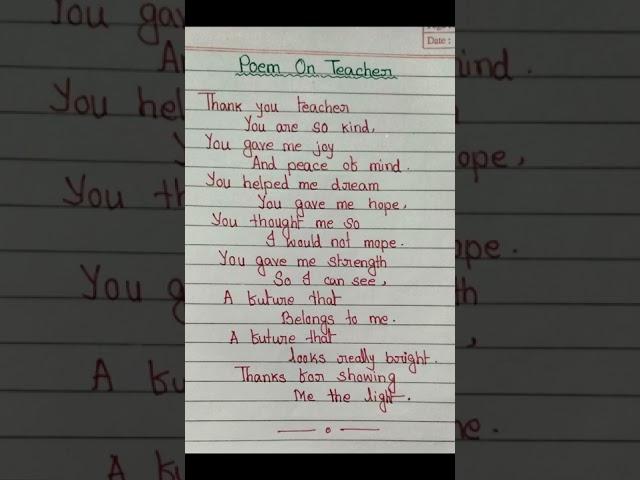 Date :
Poem On Teacher
Thank you teacher
You are so kind,
You gave me joy
And peace of mind.
You helped me dream
You gave me hope,
You thought me so
I would not mope.
You gave me strength
So I can see,
A future that
Belongs to me.
A future that
looks really bright.
Thanks for showing
Me the light.